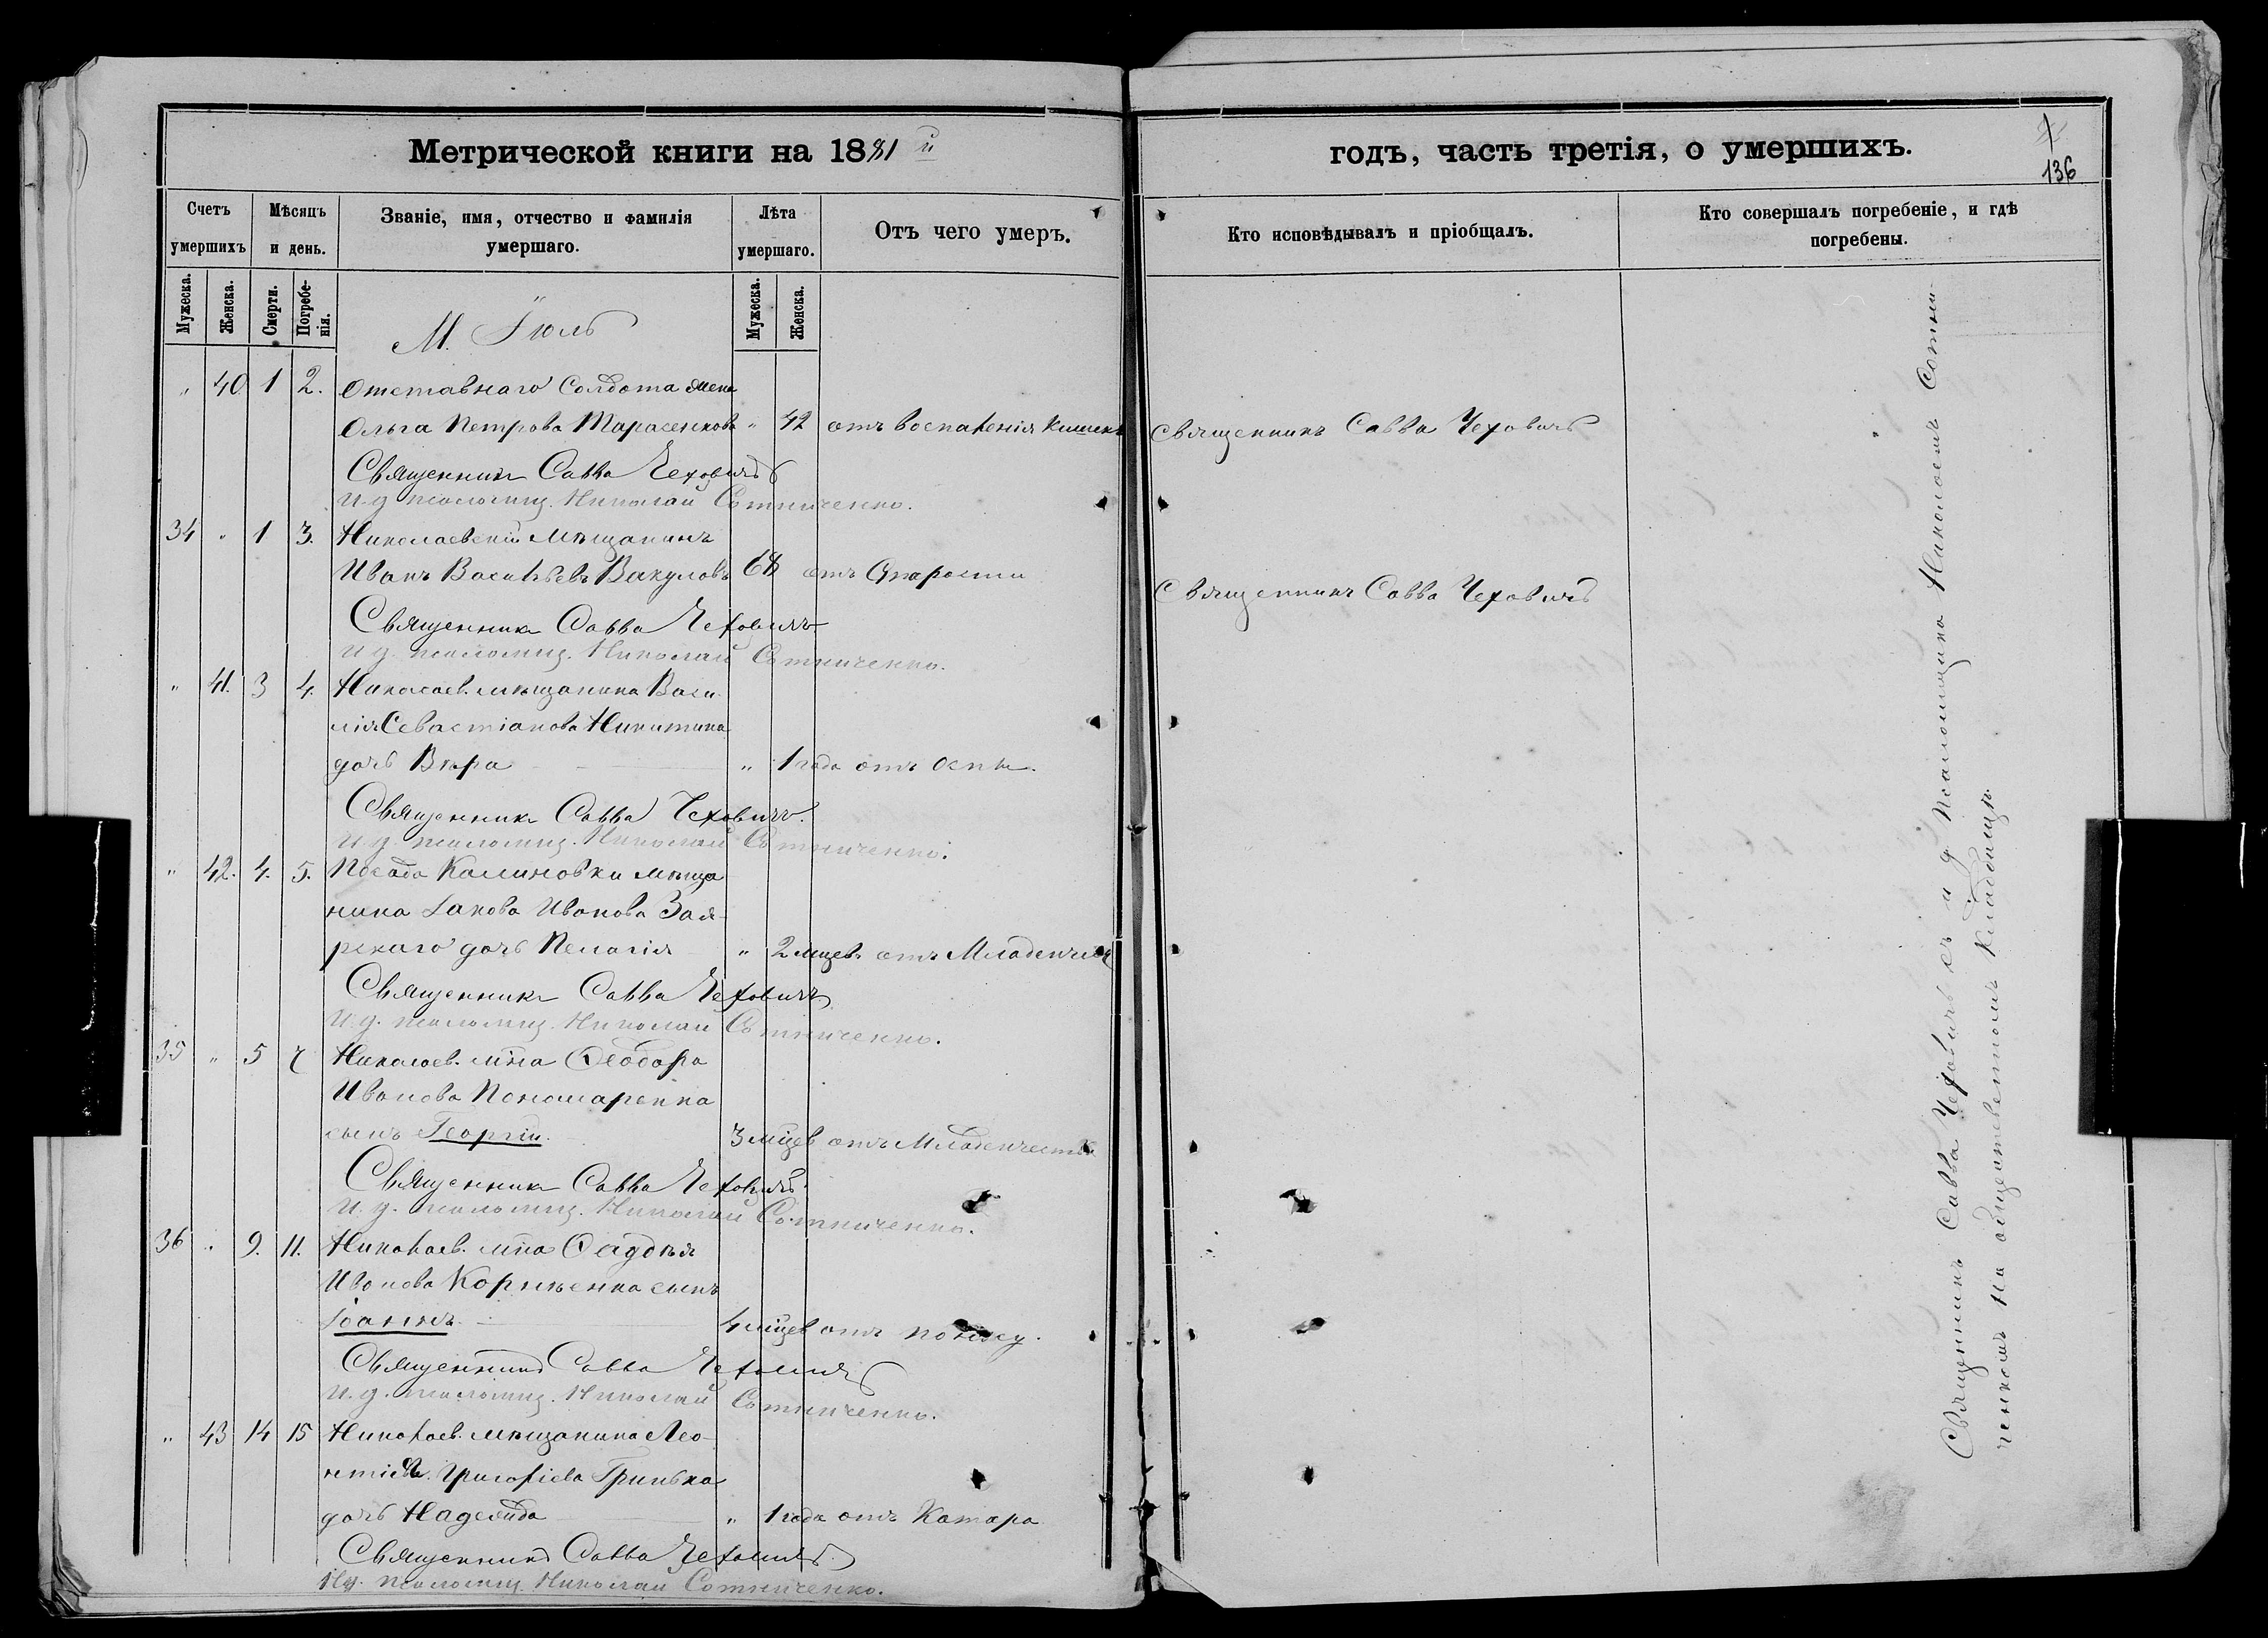 Метрической книги на 1881 й
Счетъ умершихъ
Мѣсяцъ и день.
Званіе, имя, отчество и фамилія умершаго.
Лѣта умершаго.
Отъ чего умеръ.
Мужеска. Женска. Смерти. Погребе-нія. Мужеска. Женска.
М. Іюль
" 40. 1 2. Отставнаго Солдата жена
Ольга Петрова Тарасенкова " 42 отъ воспаленія кишекъ
Священникъ Савва Чеховичъ
И. д. псаломщ. Николай Сотниченко.
34 " 1 3. Николаевскій мѣщанинъ
Иванъ Васильевъ Вакуловъ 68 отъ Старости
Священникъ Савва Чеховичъ
И. д. псаломщ. Николай Сотниченко.
" 41. 3 4. Николаев. мѣщанина Васи-
лія Севастіанова Никитина
дочь Вѣра " 1 года отъ Оспы.
Священникъ Савва Чеховичъ.
И. д. псаломщ. Николай Сотниченко.
" 42. 4. 5. Посада Калиновки мѣща
нина Іакова Иванова Зая-
рскаго дочь Пелагія " 2 мцев. отъ Младенчес
Священникъ Савва Чеховичъ
И. д. псаломщ. Николай Сотниченко.
35 " 5 7 Николаев. мѣна Ѳеодора
Иванова Пономаренка
сынъ Георгій. 3 мцев отъ Младенчества
Священникъ Савва Чеховичъ.
И. д. псаломщ. Николай Сотниченко.
36 " 9. 11. Николаев. мѣна
Иванова Корнѣенка сынъ
Іоаннъ 4 мцев отъ поносу.
Священникъ Савва Чеховичъ
И. д. псаломщ. Николай Сотниченко.
" 43 14 15 Николаев. мѣщанина Лео-
нтія Григоріева Гринька
дочь Надежда " 1 года отъ Катара
Священникъ Савва Чеховичъ.
И. д. псаломщ. Николай Сотниченко.
годъ, часть третія, о умершихъ.
136
Кто исповѣдывалъ и пріобщалъ.
Кто совершалъ погребеніе, и гдѣ погребены.
Священникъ Савва Чеховичъ
Священникъ Савва Чеховичъ
Священникъ Савва Чеховичъ съ и. д. Псаломщика Николаемъ Сотни-
ченкомъ на общественномъ кладбищѣ.